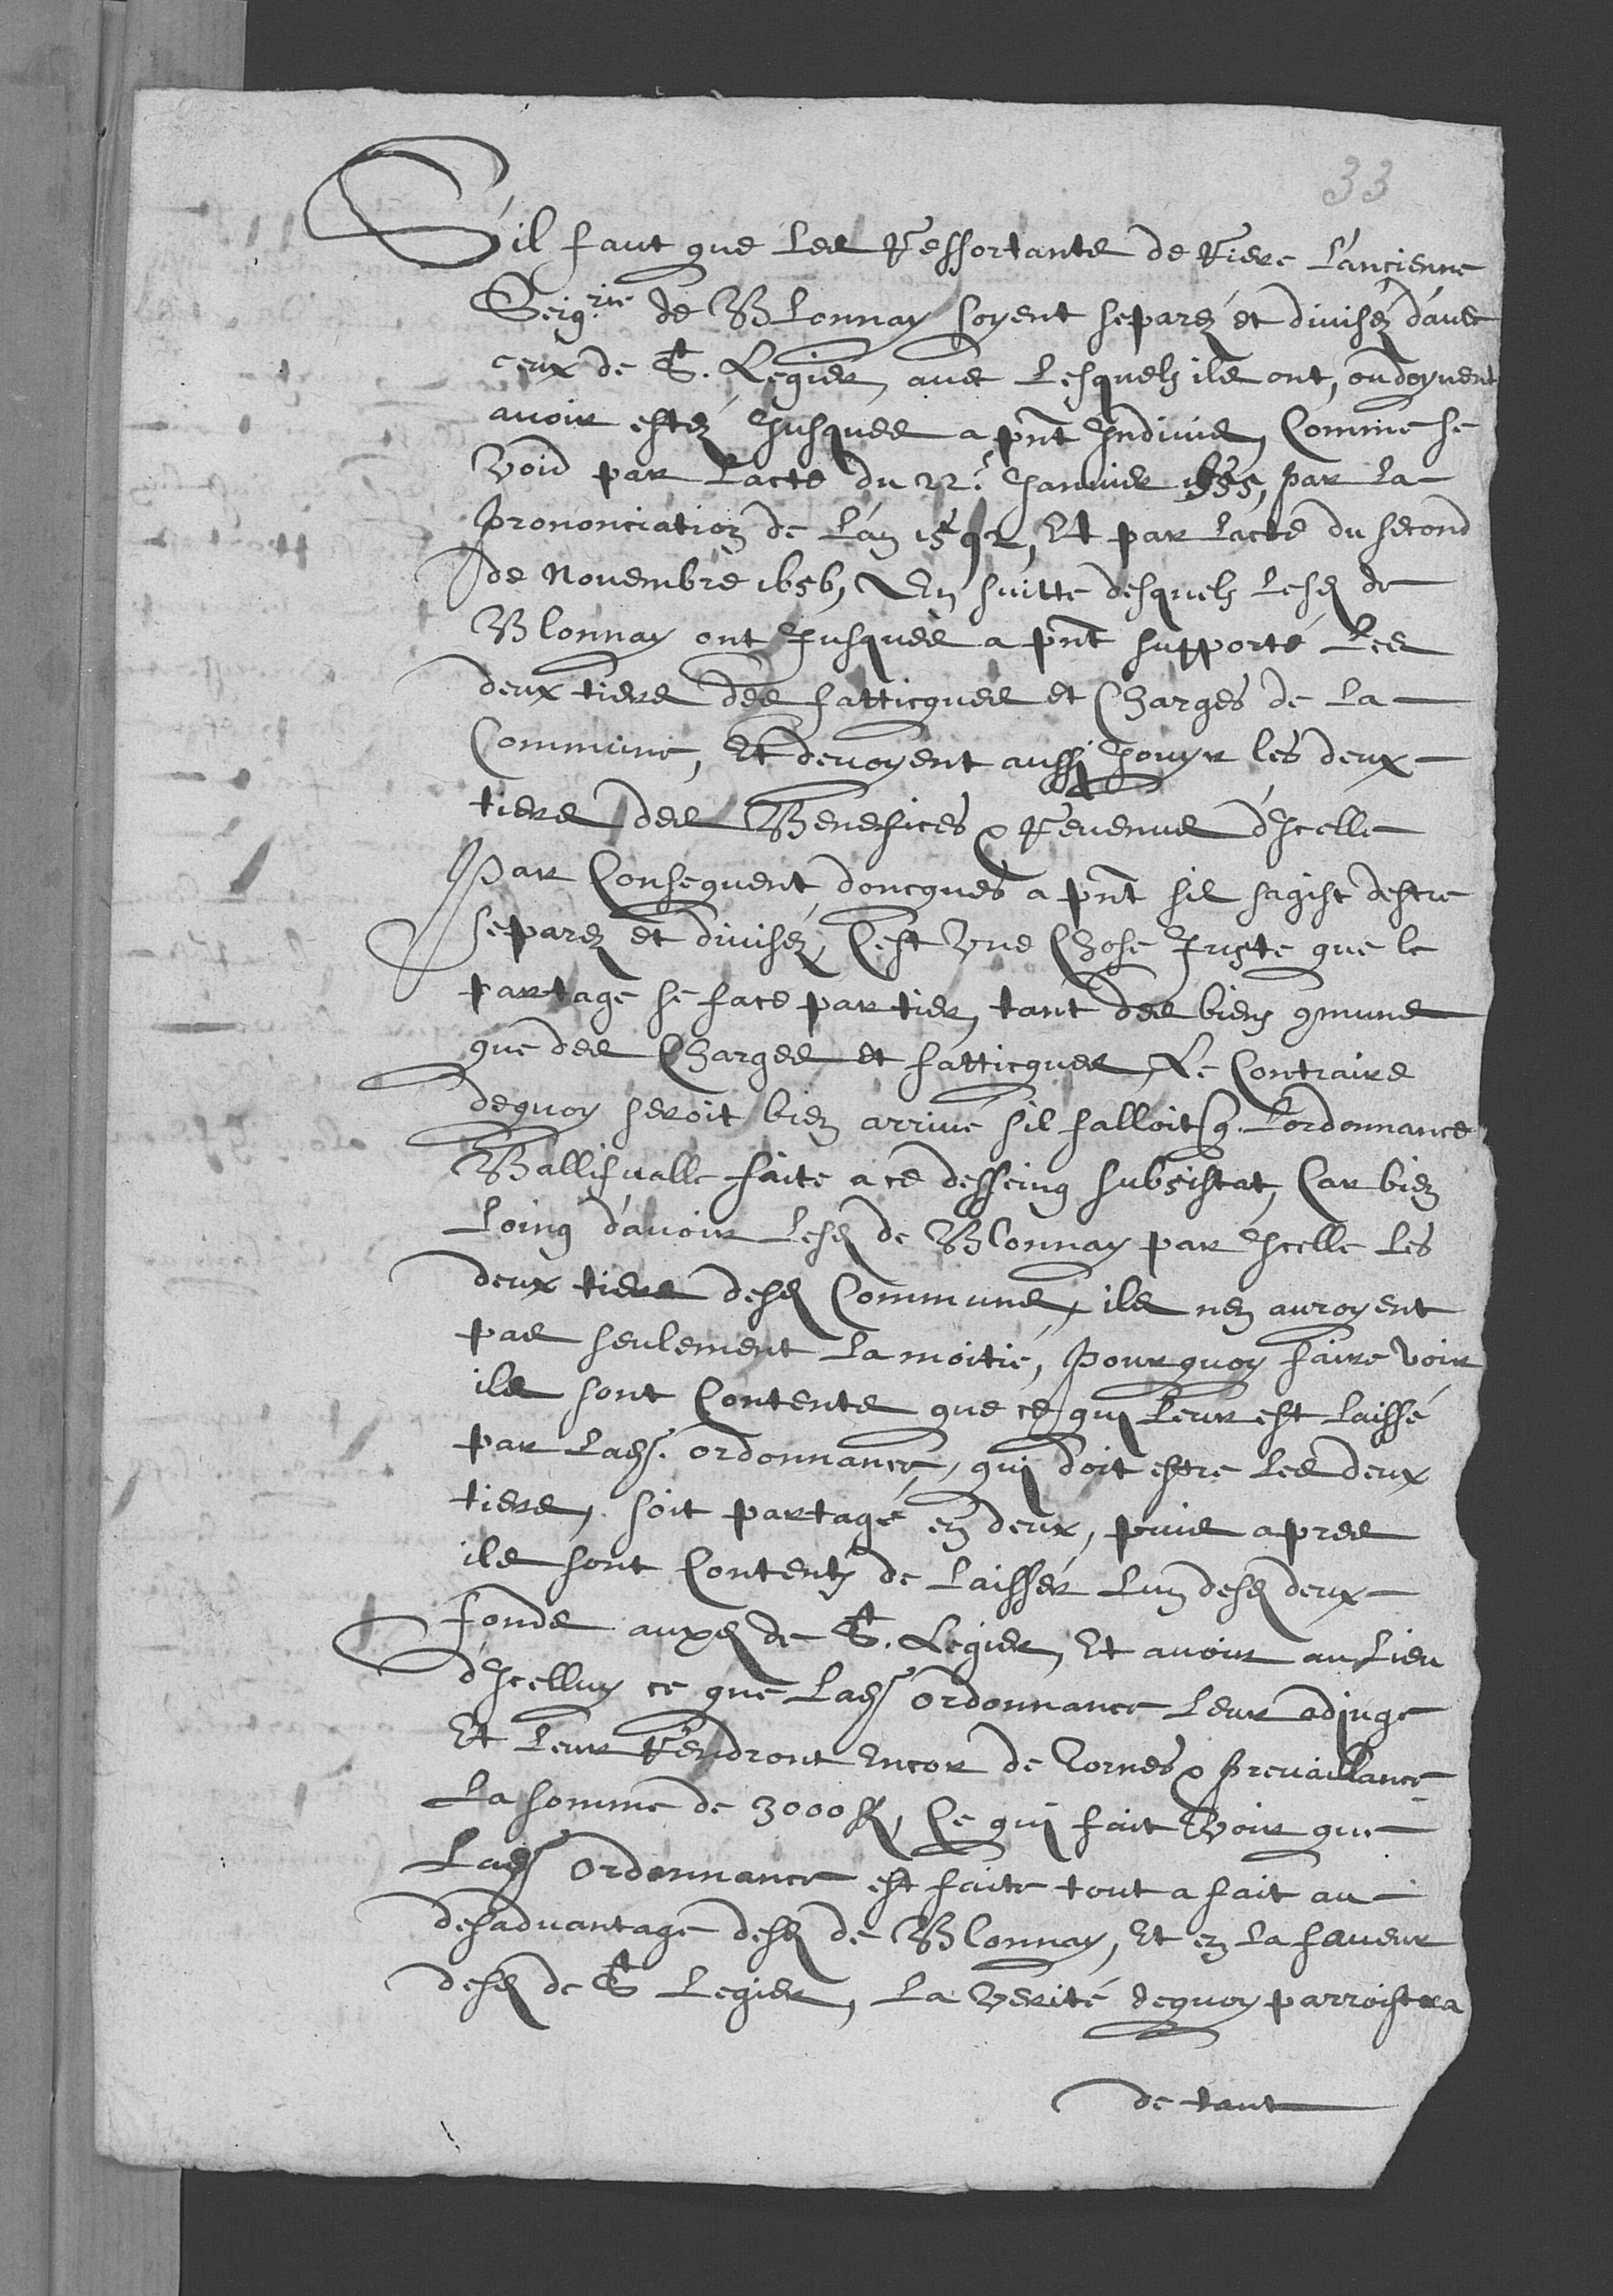 33
S'il faut que les Ressortants de Riere l'ancienne
Seig.rie de Blonnay soyent separéz et divisez d'avec
ceux de St. Legier, avec lesquelz ils ont, ou doyvent
avoir estéz Jusques a pnt Indivis, Comme se
void par lacte du 22.e Janvier 1555, par la
prononciation de l'an 1592, Et par lacte du second
de Novembre 1656, En suitte desquelz lesd de
Blonnay ont Jusques a pnt supporté les
deux tiers des fatticques et Charges de la
Commune, Et devoyent aussi Jouyr les deux
tiers des Benefices & Revenus d'Icelle
Par Consequent doncques a pnt sil sagist destre
separez et divisez, Cest Une Chose Juste que le
partage se face par tier, tant des biens 9muns
que des Charges et fatticques, Le Contraire
dequoy seroit bien arrivé sil falloit q. Lordonnance
Ballifvalle faite a ce desseing subsistat, Car bien
loing d'avoir lesd de Blonnay par Icelle les
deux tiers desd Communs, ils nen auroyent
pas seulement la moitié, Pourquoy faire voir
ils sont Contents que ce qui leur est laissé
par lad. ordonnance, qui doit estre les deux
tiers, soit partagé en deux, puis apres
ils sont Contentz de laisser lun desd deux
fonds auxd de St. Legier, Et avoir au lieu
d'Icelluy ce que lad ordonnance leur adjuge
Et leur Rendront Encor de Tornes & prevaillance
La somme de 3000 fl, Ce qui fait Voir que
Lad ordonnance est faite tout a fait au
desadvantage desd de Blonnay, Et en la faveur
desd de St Legier, La Verité dequoy parroistra
de tant